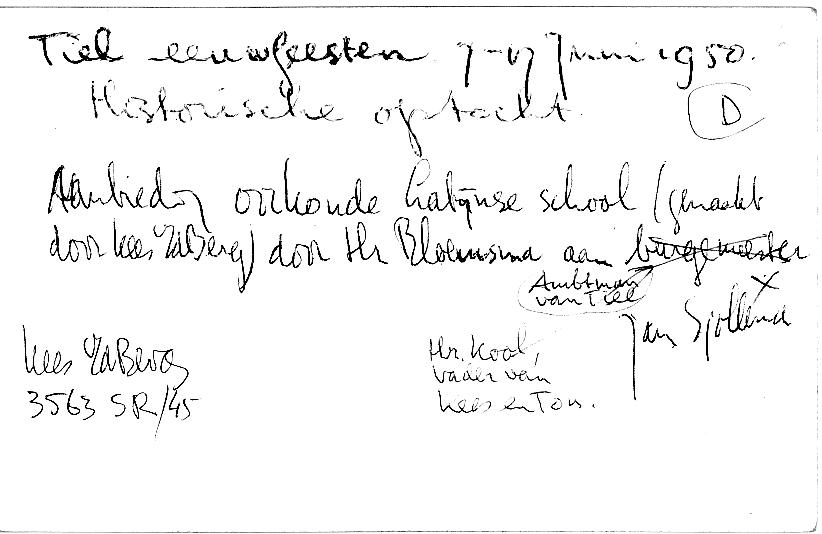 Tiel eeuwfeesten 7-17 Juni 1950.
Historische optocht. D
Aanbieding oorkonde Latijnse school (gemaakt
door Kees vd Berg) door Hr Bloemsma aan burgemeester
Ambtman
van Tiel
x
Jan Sjollema
Kees vd Berg
3563 SR/45
Hr. Kool,
vader van
Kees en Ton.